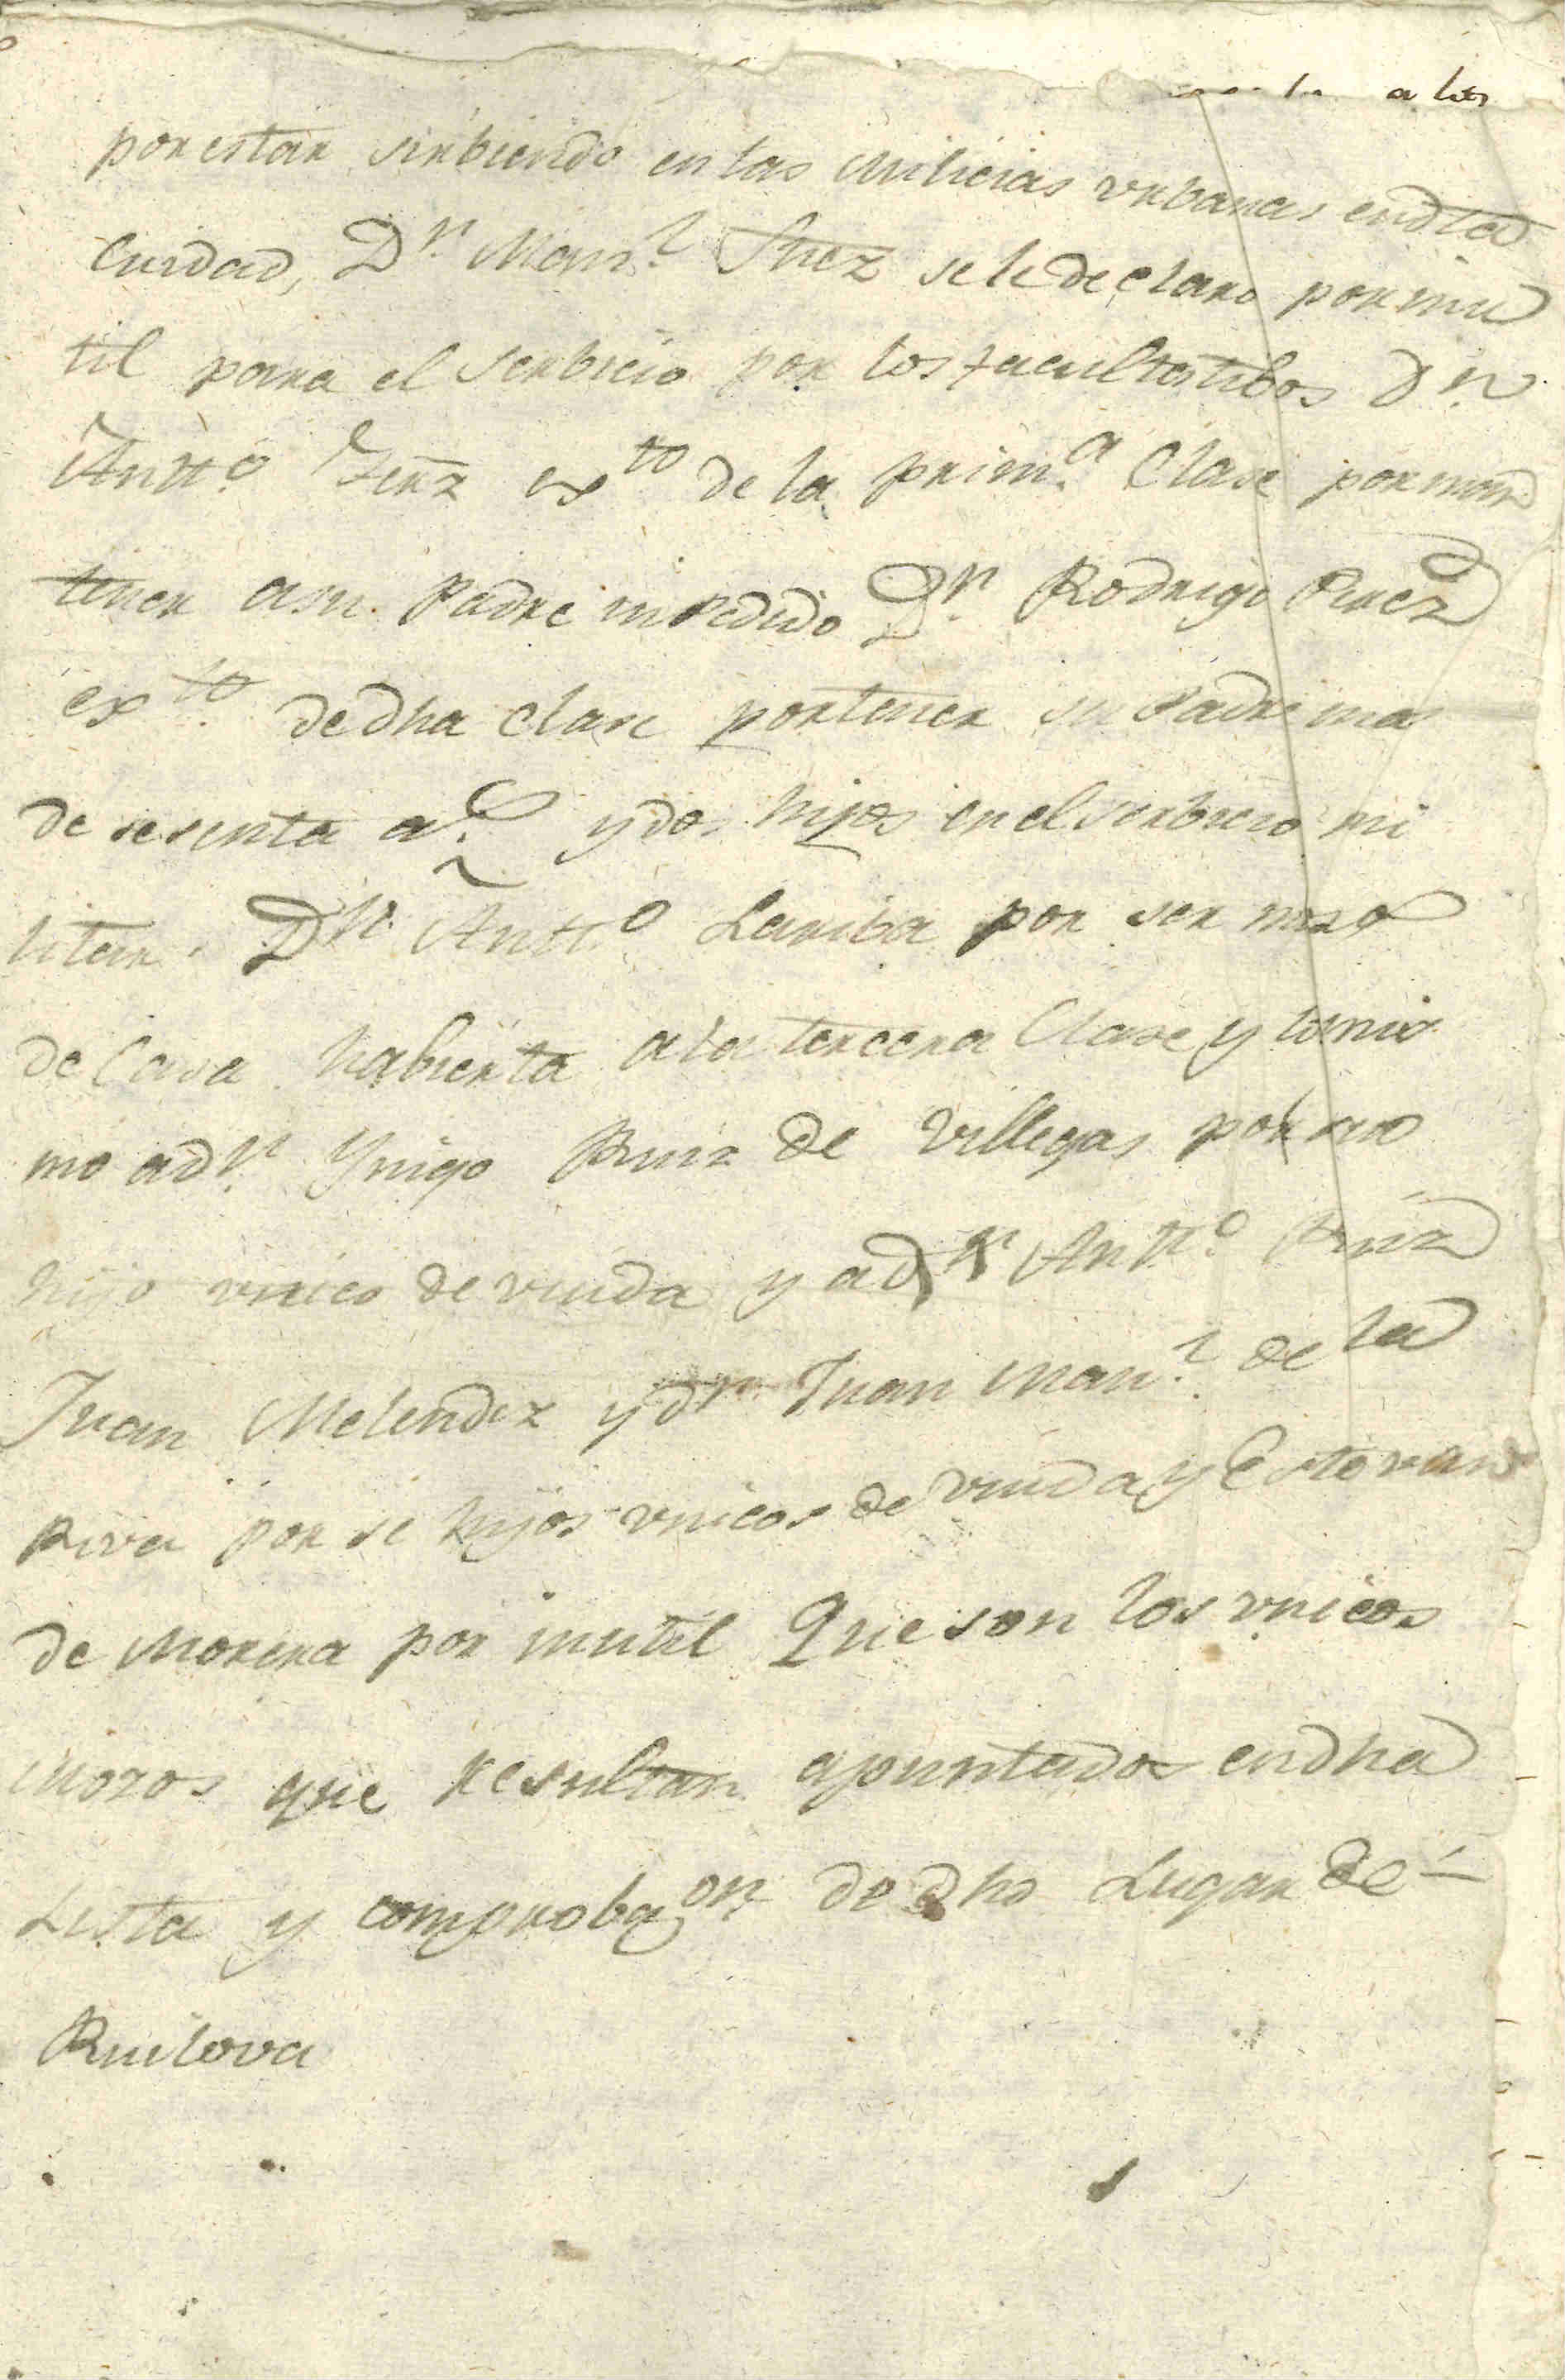 a los
por estar sirbiendo en las Milicias urbanas en dha
Ciudad, Dn. Manl. Shez se le declaro por inu
til para el serbicio por los facultatibos Dn.
Antto. Ferz exto de la prima. Clase por man
tener asu Padre inpedido Dn. Rodrigo Perez
exto. de dha clase por tener su Padre mas
de sesenta as. y dos hijos en el serbicio mi
litar. Dn. Antto. Lariba por ser mozo
de Casa habierta a la tercera Clase y lo mis
mo a Dn. Ynigo Ruiz de Villegas por
hijo vnico de viuda y a dn Antto. Ruiz
Juan Melendez y dn Juan Manl. de la
Riva por se hijos vnicos de viuda y Estevan
de Morera por inutil Que son los vnicos
mozos que resultan apuntados en dha
Lista y comprobaon. de dho Lugar de
Ruilova